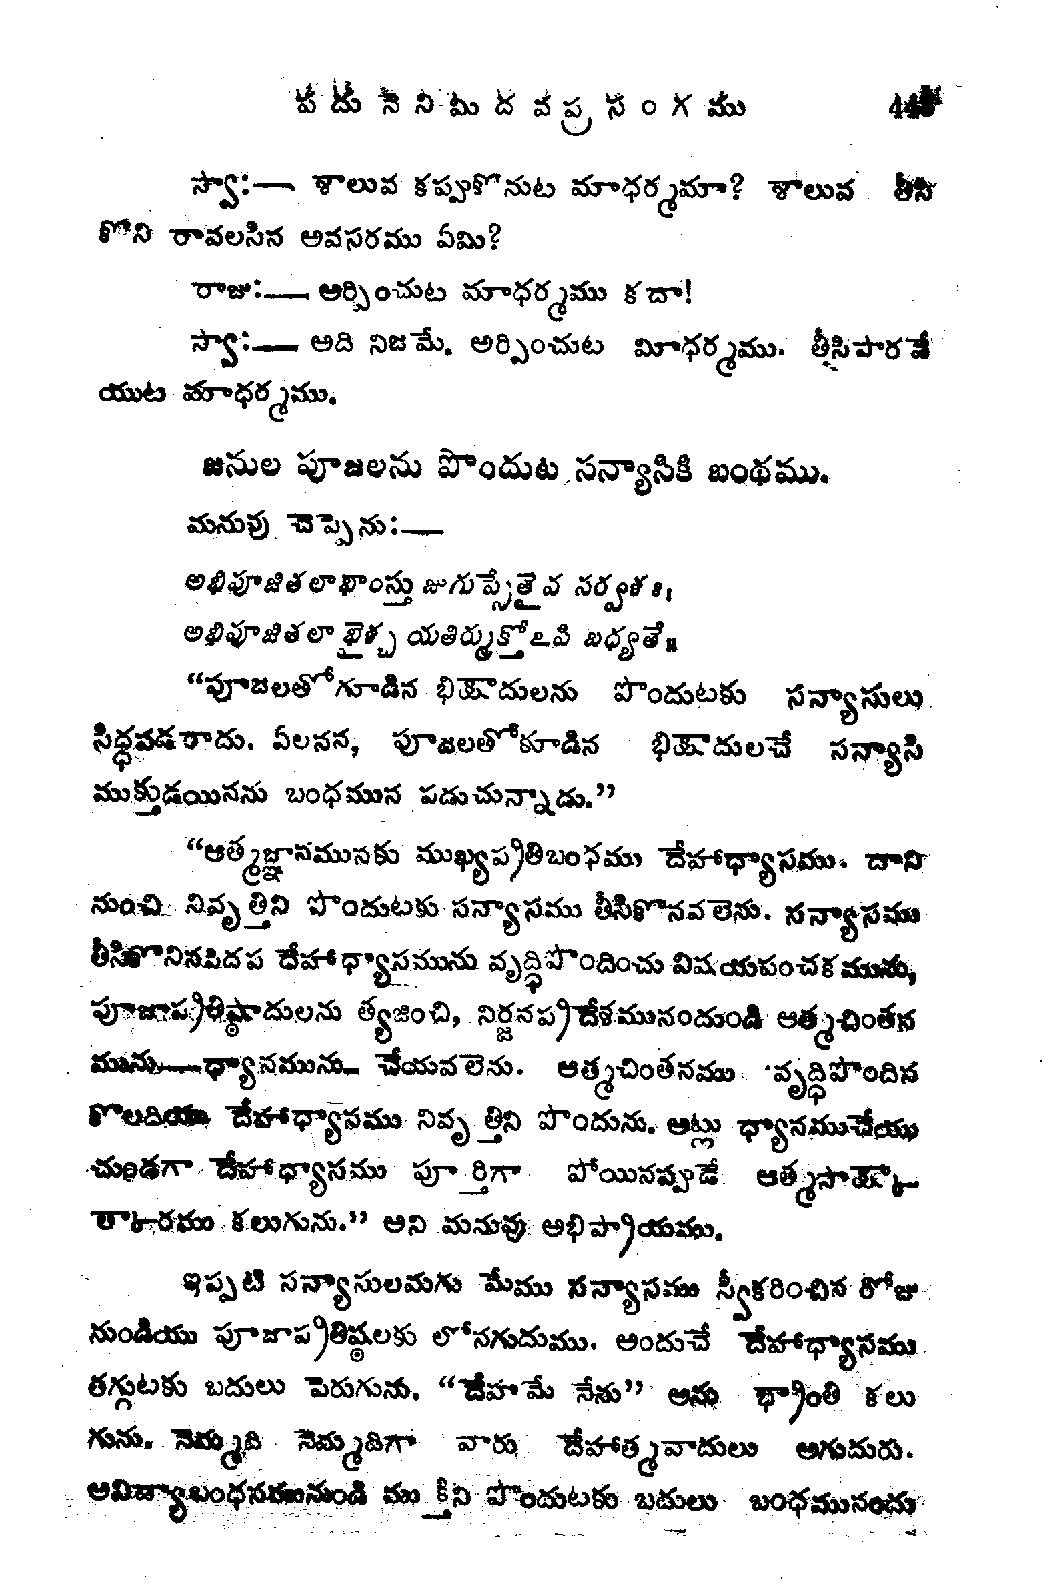 పదునెనిమిదవప్రసంగము
స్వా:— శాలువ కప్పుకొనుట మాధర్మమా? శాలువ తీసి
కోని రావలసిన అవసరము ఏమి?
రాజు:— అర్పించుట మాధర్మము కదా!
స్వా:— అది నిజమే. అర్పించుట మీధర్మము. తీసిపారవే
యుట మాధర్మము.
జనుల పూజలను పొందుట సన్యాసికి బంథము.
మనువు చెప్పెను:—
అభిపూజితలాభాంస్తు జుగుప్సేతైవ సర్వశః।
అభిపూజితలాభైశ్చ యతిర్ముక్తోఽపి బధ్యతే॥
“పూజలతోగూడిన భిక్షాదులను పొందుటకు సన్యాసులు
సిద్ధపడరాదు. ఏలనన, పూజలతోకూడిన భిక్షాదులచే సన్యాసి
ముక్తుడయినను బంధమున పడుచున్నాడు.”
“ఆత్మజ్ఞానమునకు ముఖ్యప్రతిబంధము దేహాధ్యాసము. దాని
నుంచి నివృత్తిని పొందుటకు సన్యాసము తీసికొనవలెను. సన్యాసము
తీసికొనినపిదప దేహాధ్యాసమును వృద్ధిపొందించు విషయపంచకమును,
పూజాప్రతిష్ఠాదులను త్యజించి, నిర్జనప్రదేశమునందుండి ఆత్మచింతన
మును—ధ్యానమును—చేయవలెను. ఆత్మచింతనము వృద్ధిపొందిన
కొలదియు దేహాధ్యాసము నివృత్తిని పొందును. అట్లు ధ్యానముచేయు
చుండగా దేహాధ్యాసము పూర్తిగా పోయినప్పుడే ఆత్మసాక్షా—
త్కారము కలుగును.” అని మనువు అభిప్రాయము.
ఇప్పటి సన్యాసులమగు మేము సన్యాసము స్వీకరించిన రోజు
నుండియు పూజాప్రతిష్ఠలకు లోనగుదుము. అందుచే దేహాధ్యాసము
తగ్గుటకు బదులు పెరుగును. “దేహమే నేను” అను భ్రాంతి కలు
గును. నెమ్మది నెమ్మదిగా వారు దేహాత్మవాదులు అగుదురు.
అవిద్యాబంధనమునుండి ముక్తిని పొందుటకు బదులు బంధమునందు